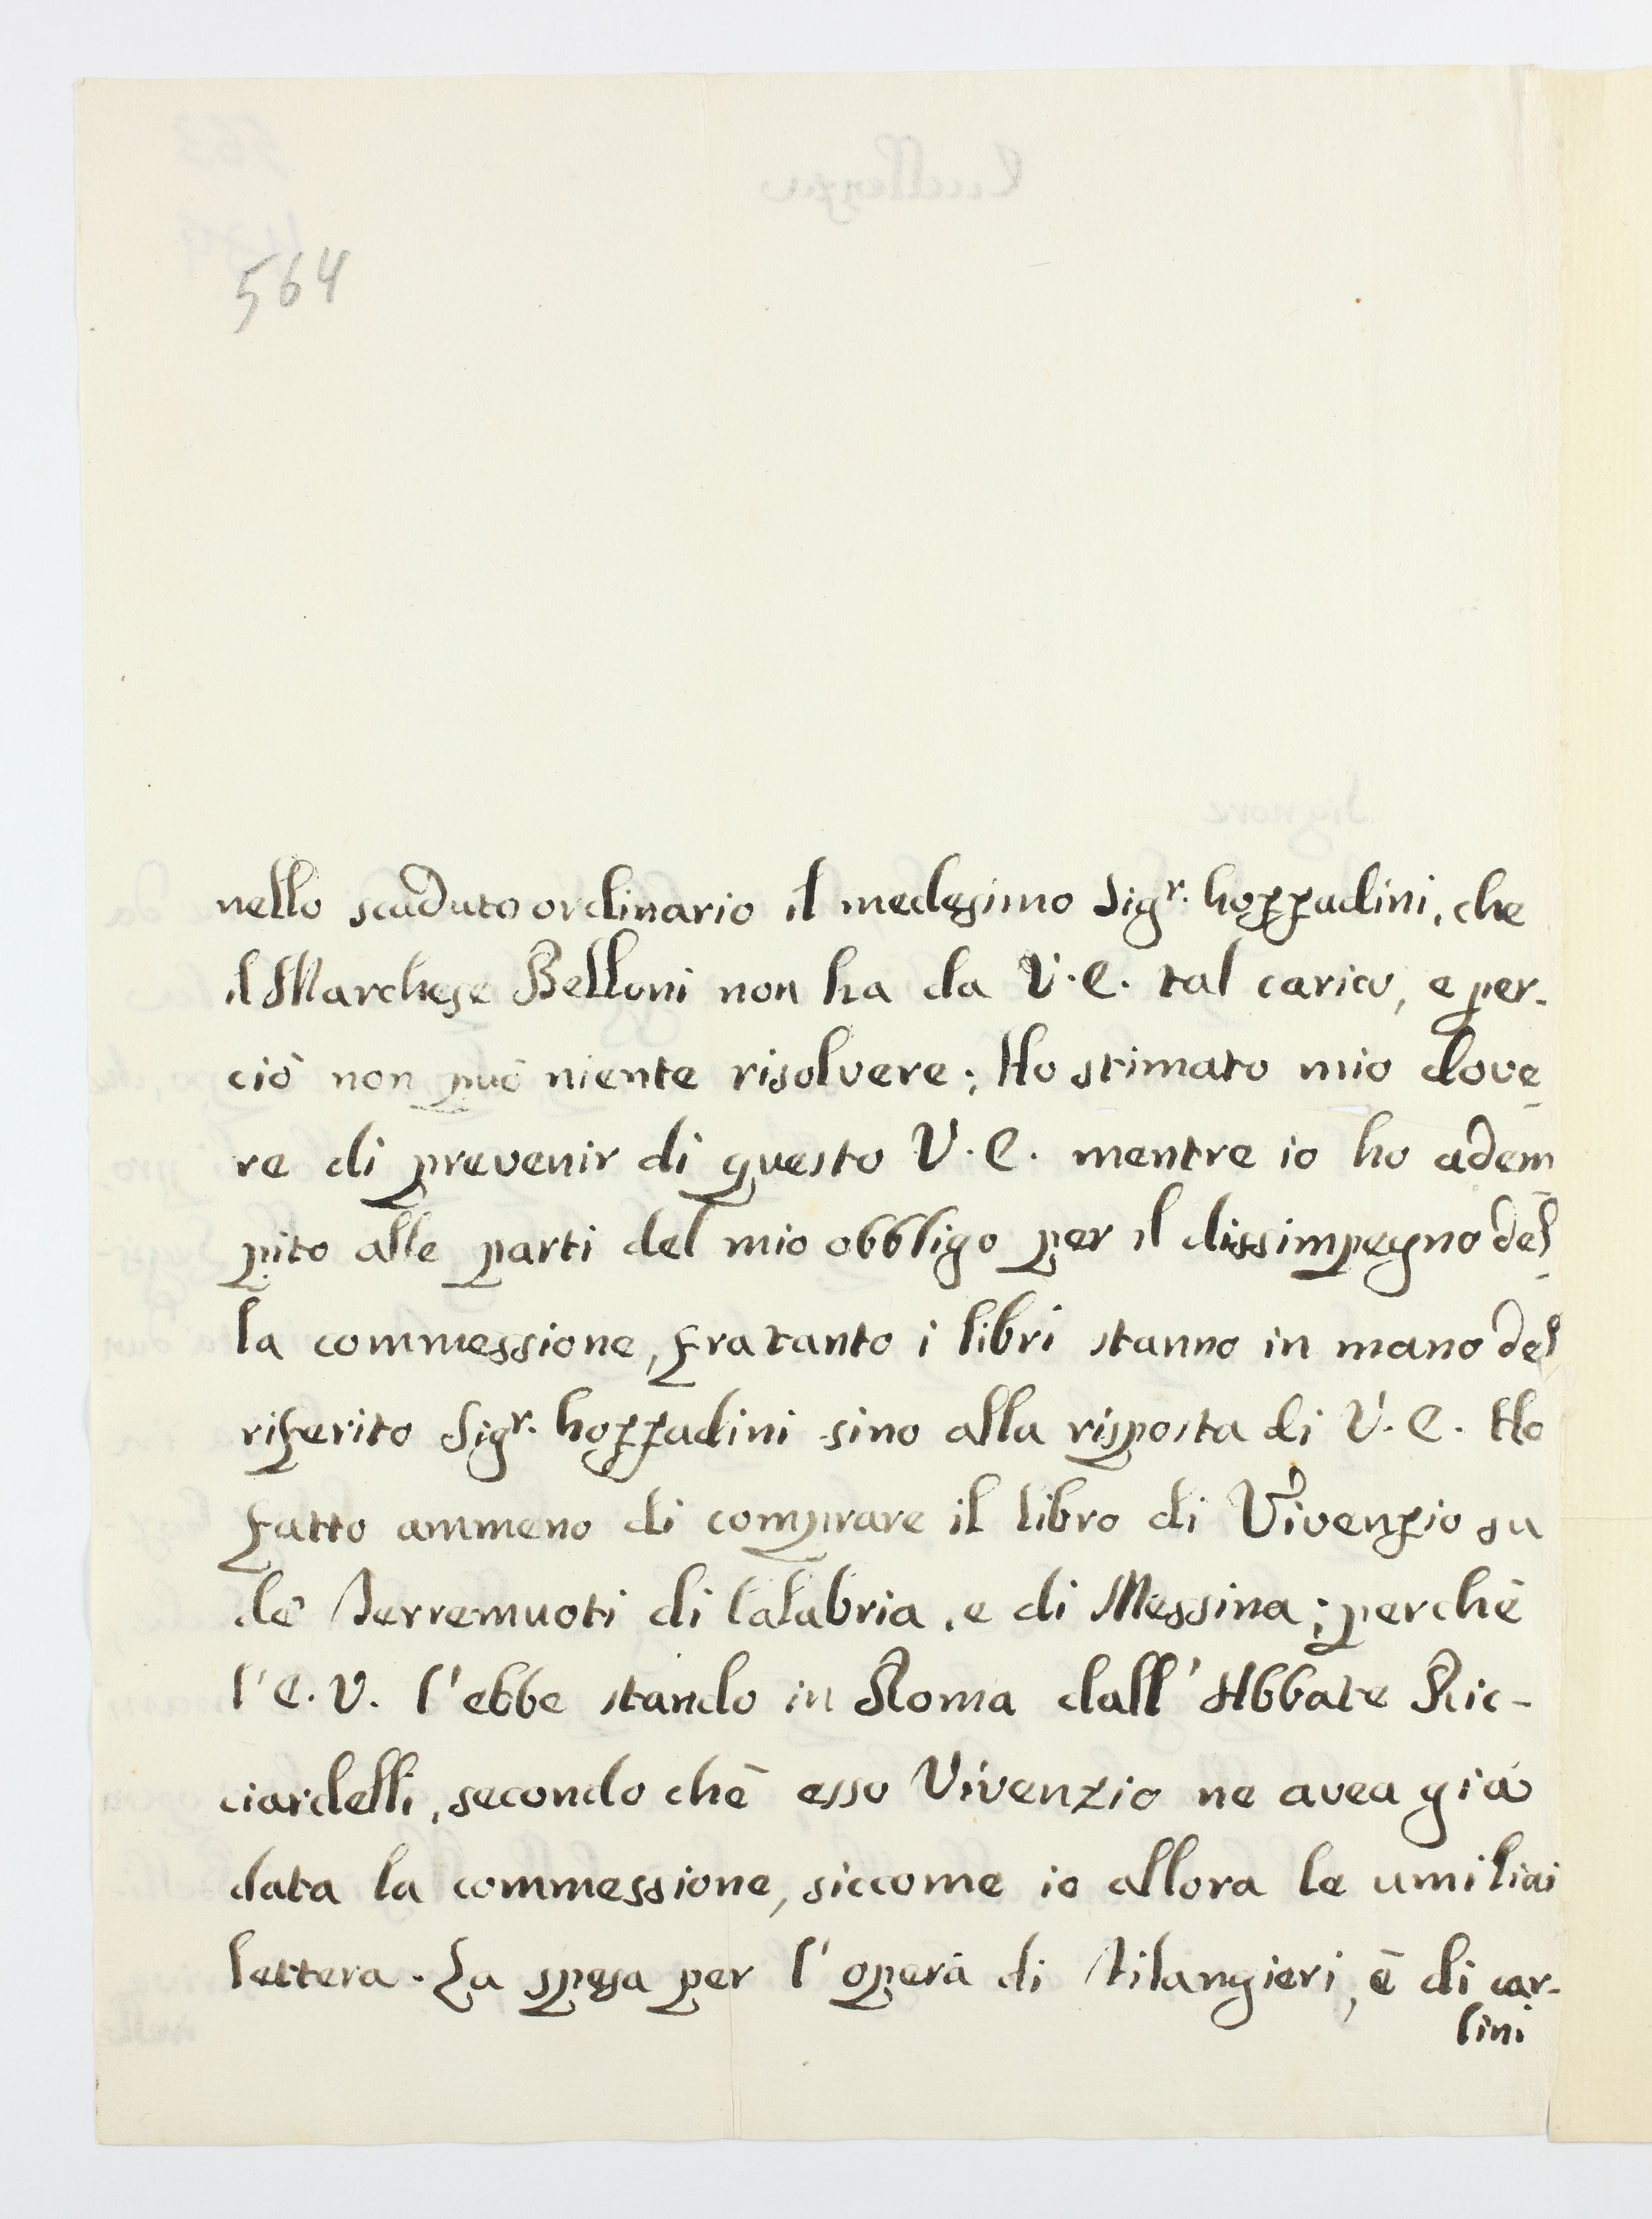 564
nello scaduto ordinario il medesimo Sigr. hozzadini, che
il Marchese Belloni non ha da V.E. tal carico, e per-
ciò non può niente risolvere; Ho stimato mio dove
re di prevenir di questo V.E. mentre io ho adem
pito alle parti del mio obbligo per il dissimpegno del
la commessione, fratanto i libri stanno in mano del
riferito Sigr. hozzadini sino alla risposta di V.E. Ho
fatto ammeno di comprare il libro di Vivenzio su
de' Terremuoti di Calabria, e di Messina; perchè
l'E.V. l'ebbe stando in Roma dall'Abbate Ric-
ciardelli, secondo chè esso Vivenzio ne avea già
data la commessione, siccome io allora le umiliai
lettera. La spesa per l'opera di Filangieri, è di car-
lini